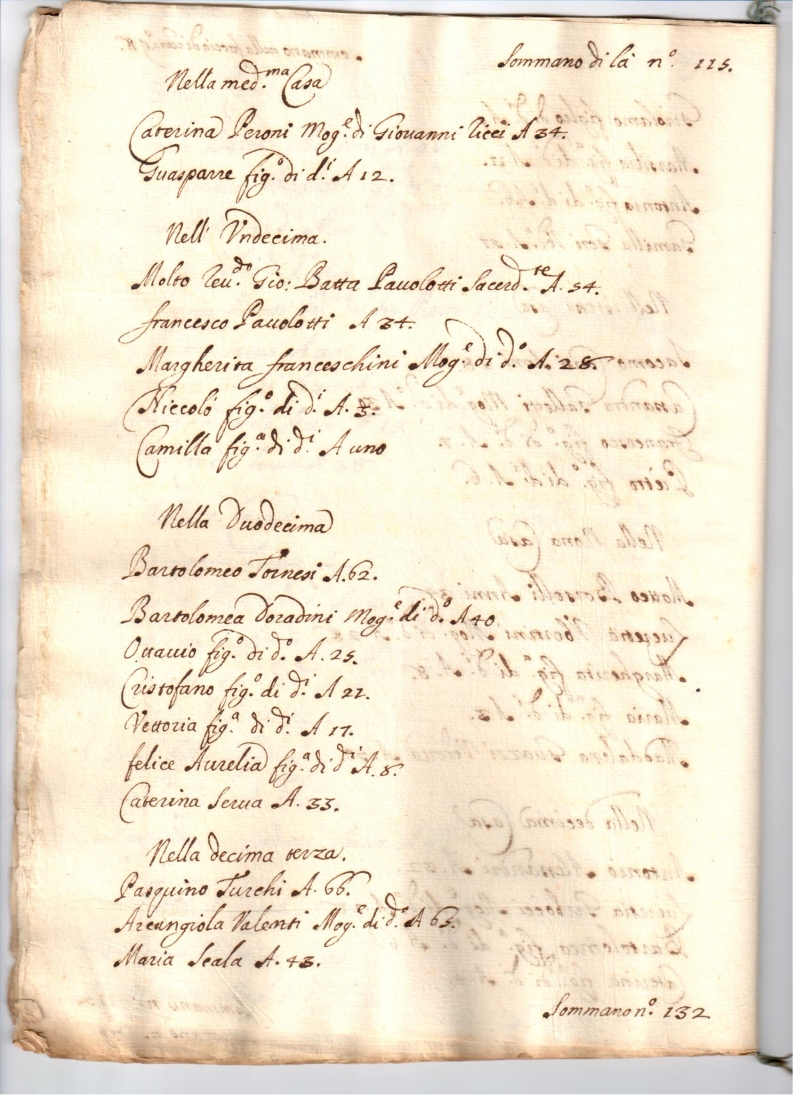 Sommano di là n.º 115.
Nella med.ma Casa
Caterina Peroni Mog.e di Giovanni Ricci A 34.
Guasparre fig.º di d.i A 12.
Nell' Undecima.
Molto Reu.do Gio: Batta Pauolotti Sacerd.te A. 54.
francesco Pauolotti A 34.
Margherita franceschini Mog.e di d.º A. 28.
Niccolò fig.º di d.i A. 3.
Camilla fig.a di d.i A uno
Nella Duodecima
Bartolomeo Fornesi A. 62.
Bartolomea Doradini Mog.e di d.º A 40
Ottauio fig.º di d.º A. 25.
Cristofano fig.º di d.i A 22.
Vettoria fig.a di d.i A 17.
felice Aurelia fig.a di d.i A. 8.
Caterina Serua A. 33.
Nella decima terza.
Pasquino Turchi A. 66.
Arcangiola Valenti Mog.e di d.º A 65.
Maria Scala A. 43.
Sommano n.º 132